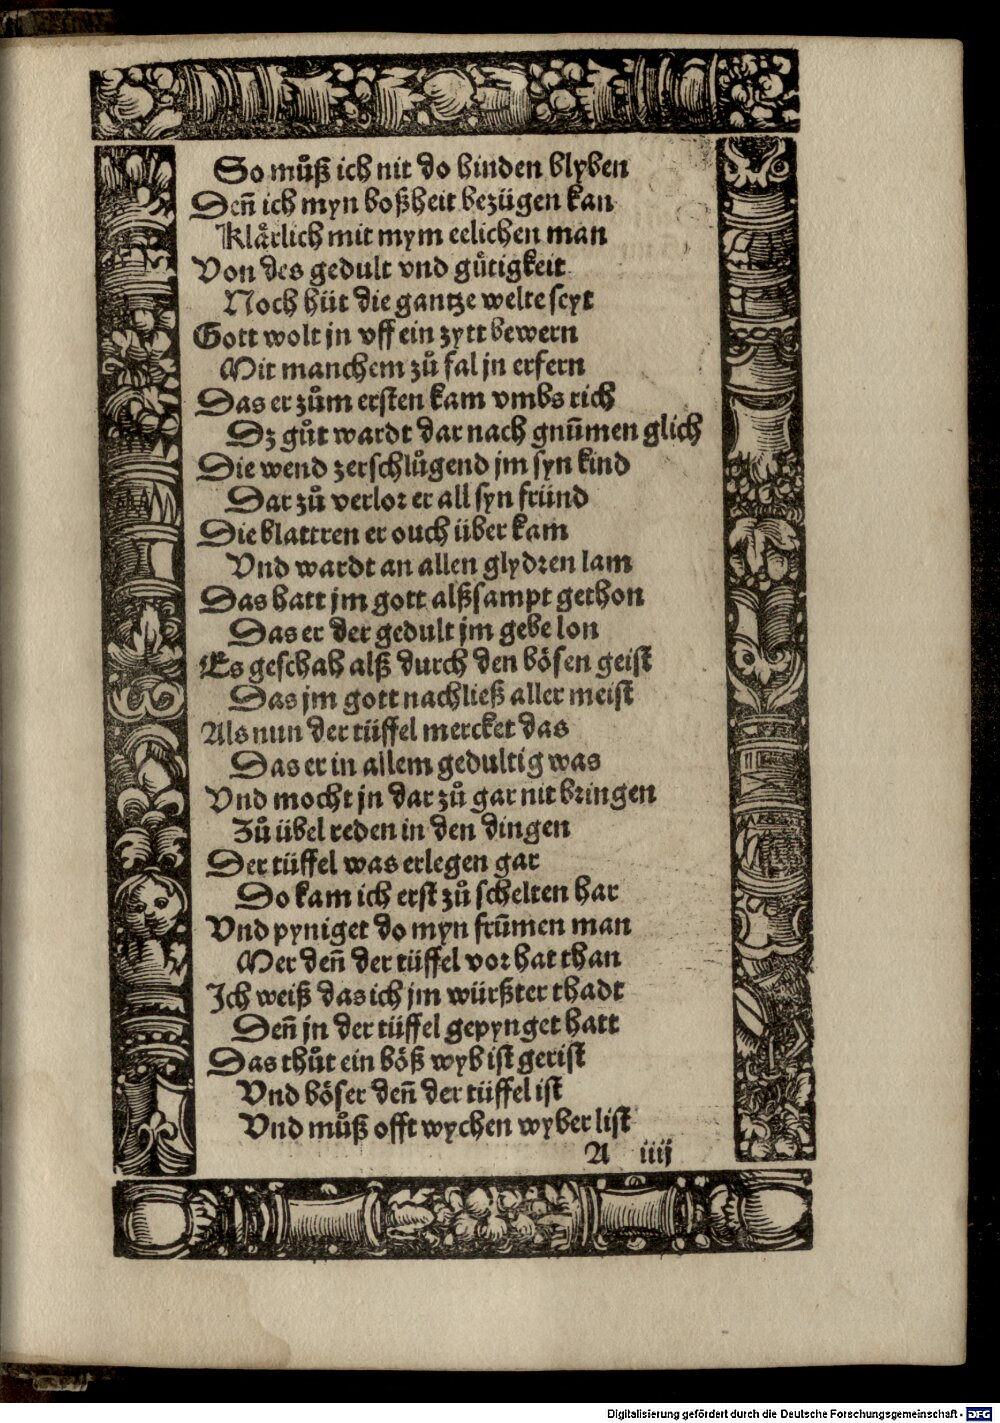 So muͦß ich nit do hinden blyben
Deñ ich myn boßheit bezügen kan
Klaͤrlich mit mym eelichen man
Von des gedult vnd guͤtigkeit
Noch hüt die gantze welte seyt
Gott wolt jn vff ein zytt bewern
Mit manchem zuͦ fal jn erfern
Das er zuͦm ersten kam vmbs rich
Dz guͦt wardt dar nach gnūmen glich
Die wend zerschluͦgend jm syn kind
Dar zuͦ verlor er all syn fründ
Die blattren er ouch über kam
Vnd wardt an allen glydren lam
Das hatt jm gott alßsampt gethon
Das er der gedult jm gebe lon
Es geschah alß durch den bösen geist
Das jm gott nachließ aller meist
Als nun der tüffel mercket das
Das er in allem gedultig was
Vnd mocht jn dar zuͦ gar nit bringen
Zuͦ übel reden in den dingen
Der tüffel was erlegen gar
Do kam ich erst zuͦ schelten har
Vnd pyniget do myn frūmen man
Mer deñ der tüffel vor hat than
Ich weiß das ich jm würßter thadt
Deñ jn der tüffel gepynget hatt
Das thuͦt ein böß wyb ist gerist
Vnd böser deñ der tüffel ist
Vnd muͦß offt wychen wyber list
A iiij
Digitalisierung gefördert durch die Deutsche Forschungsgemeinschaft - DFG